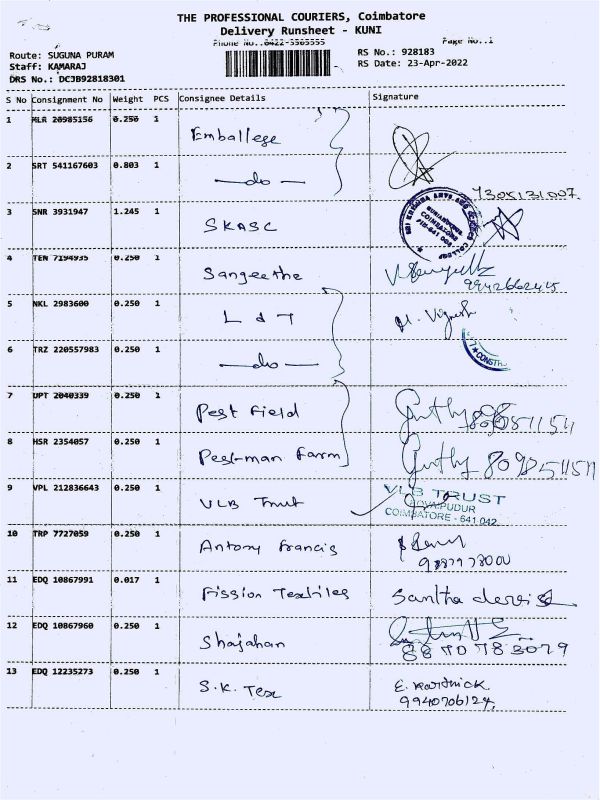 THE PROFESSIONAL COURIERS, Coimbatore
Delivery Runsheet - KUNI
Phone No..0422-5565555
Page No..1
Route: SUGUNA PURAM
Staff: KAMARAJ
DRS No.: DCJB92818301
RS No.: 928183
RS Date: 23-Apr-2022
S No Consignment No Weight PCS Consignee Details Signature
1 MLR 20985156 0.250 1 Emballege
2 SRT 541167603 0.803 1 —do—
7305131007
3 SNR 3931947 1.245 1 SKASC
SRI KRISHNA ARTS AND SCIENCE COLLEGE
COIMBATORE
4 TEN 7194935 0.250 1 Sangeethe
9942662445
5 NKL 2983600 0.250 1 L & T M. Vignesh
6 TRZ 220557983 0.250 1 —do—
CONSTR
7 UPT 2040339 0.250 1 Pest Field
8 HSR 2354057 0.250 1 Pest-man Farm
9 VPL 212836643 0.250 1 VLB Trust
VLB TRUST
KOVAIPUDUR
COIMBATORE - 641 042
10 TRP 7727059 0.250 1 Antony Francis
11 EDQ 10867991 0.017 1 Fission Textiles Santha
12 EDQ 10867960 0.250 1 Shajahan
8870783079
13 EDQ 12235273 0.250 1 S.K. Tex E. Karthick
9940706124